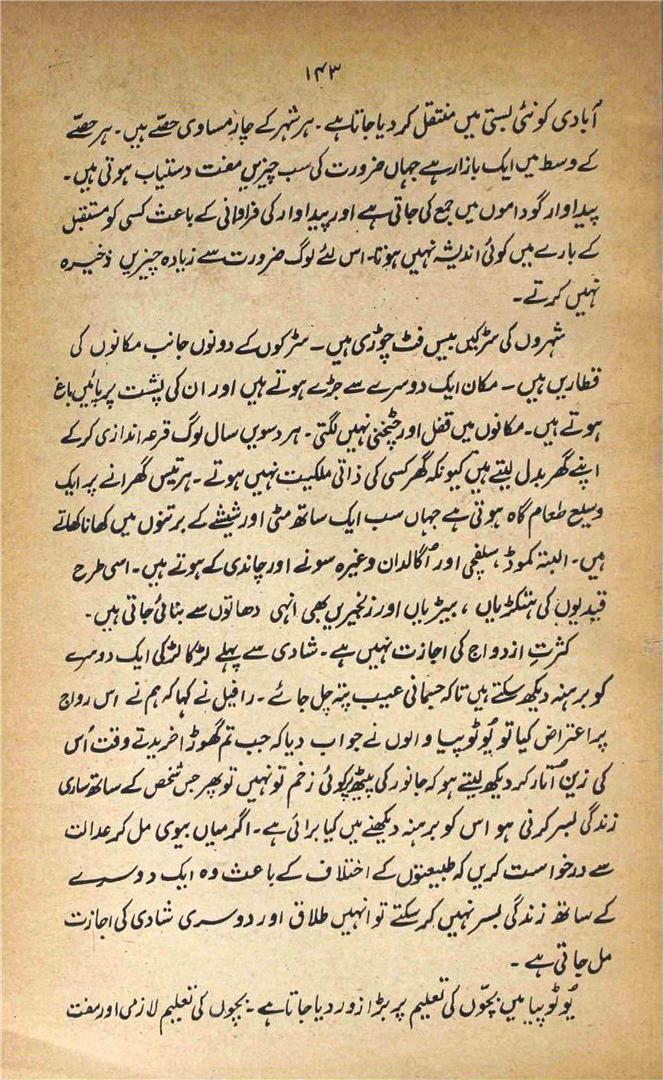 ۱۴۳
آبادی کو نئی بستی میں منتقل کر دیا جاتا ہے۔ ہر شہر کے چار مساوی حصّے ہیں۔ ہر حصّے
کے وسط میں ایک بازار ہے جہاں ضرورت کی سب چیزیں مفت دستیاب ہوتی ہیں۔
پیداوار گوداموں میں جمع کی جاتی ہے اور پیداوار کی فراوانی کے باعث کسی کو مستقبل
کے بارے میں کوئی اندیشہ نہیں ہوتا۔ اس لئے لوگ ضرورت سے زیادہ چیزیں ذخیرہ
نہیں کرتے۔
شہروں کی سڑکیں بیس فٹ چوڑی ہیں۔ سڑکوں کے دونوں جانب مکانوں کی
قطاریں ہیں۔ مکان ایک دوسرے سے جڑے ہوتے ہیں اور ان کی پشت پر پائیں باغ
ہوتے ہیں۔ مکانوں میں قفل اور چٹخنی نہیں لگتی۔ ہر دسویں سال لوگ قرعہ اندازی کر کے
اپنے گھر بدل لیتے ہیں کیونکہ گھر کسی کی ذاتی ملکیت نہیں ہوتے۔ ہر تیس گھرانے پر ایک
وسیع طعام گاہ ہوتی ہے جہاں سب ایک ساتھ مٹی اور شیشے کے برتنوں میں کھانا کھاتے
ہیں۔ البتہ کموڈ، سلفچی اور اُگالدان وغیرہ سونے اور چاندی کے ہوتے ہیں۔ اسی طرح
قیدیوں کی ہتکڑیاں، بیڑیاں اور زنجیریں بھی انہی دھاتوں سے بنائی جاتی ہیں۔
کثرتِ ازدواج کی اجازت نہیں ہے۔ شادی سے پہلے لڑکا لڑکی ایک دوسرے
کو برہنہ دیکھ سکتے ہیں تاکہ جسمانی عیب پتہ چل جائے۔ رافیل نے کہا کہ ہم نے اس رواج
پر اعتراض کیا تو یُوٹوپیا والوں نے جواب دیا کہ جب تم گھوڑا خریدتے وقت اُس
کی زین اُتار کر دیکھ لیتے ہو کہ جانور کی پیٹھ پر کوئی زخم تو نہیں تو پھر جس شخص کے ساتھ ساری
زندگی بسر کرنی ہو اس کو برہنہ دیکھنے میں کیا برائی ہے۔ اگر میاں بیوی مل کر عدالت
سے درخواست کریں کہ طبیعتوں کے اختلاف کے باعث وہ ایک دوسرے
کے ساتھ زندگی بسر نہیں کر سکتے تو انہیں طلاق اور دوسری شادی کی اجازت
مل جاتی ہے۔
یُوٹوپیا میں بچّوں کی تعلیم پر بڑا زور دیا جاتا ہے۔ بچوں کی تعلیم لازمی اور مفت